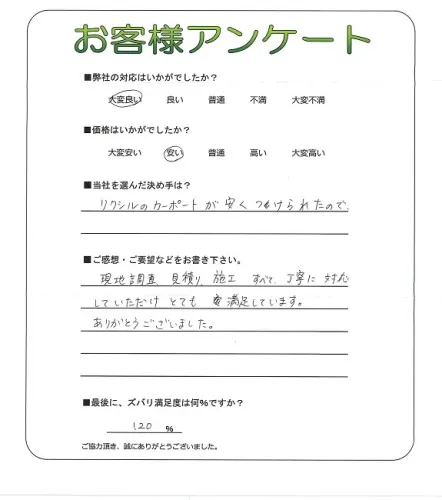 お客様アンケート
■弊社の対応はいかがでしたか?
大変良い 良い 普通 不満 大変不満
■価格はいかがでしたか?
大変安い 安い 普通 高い 大変高い
■当社を選んだ決め手は?
リクシルのカーポートが安くつけられたので、
■ご感想・ご要望などをお書き下さい。
現地調査、見積り、施工 すべて、丁寧に対応
していただけ とても 満足しています。
ありがとうございました。
■最後に、ズバリ満足度は何%ですか?
120 %
ご協力頂き、誠にありがとうございました。